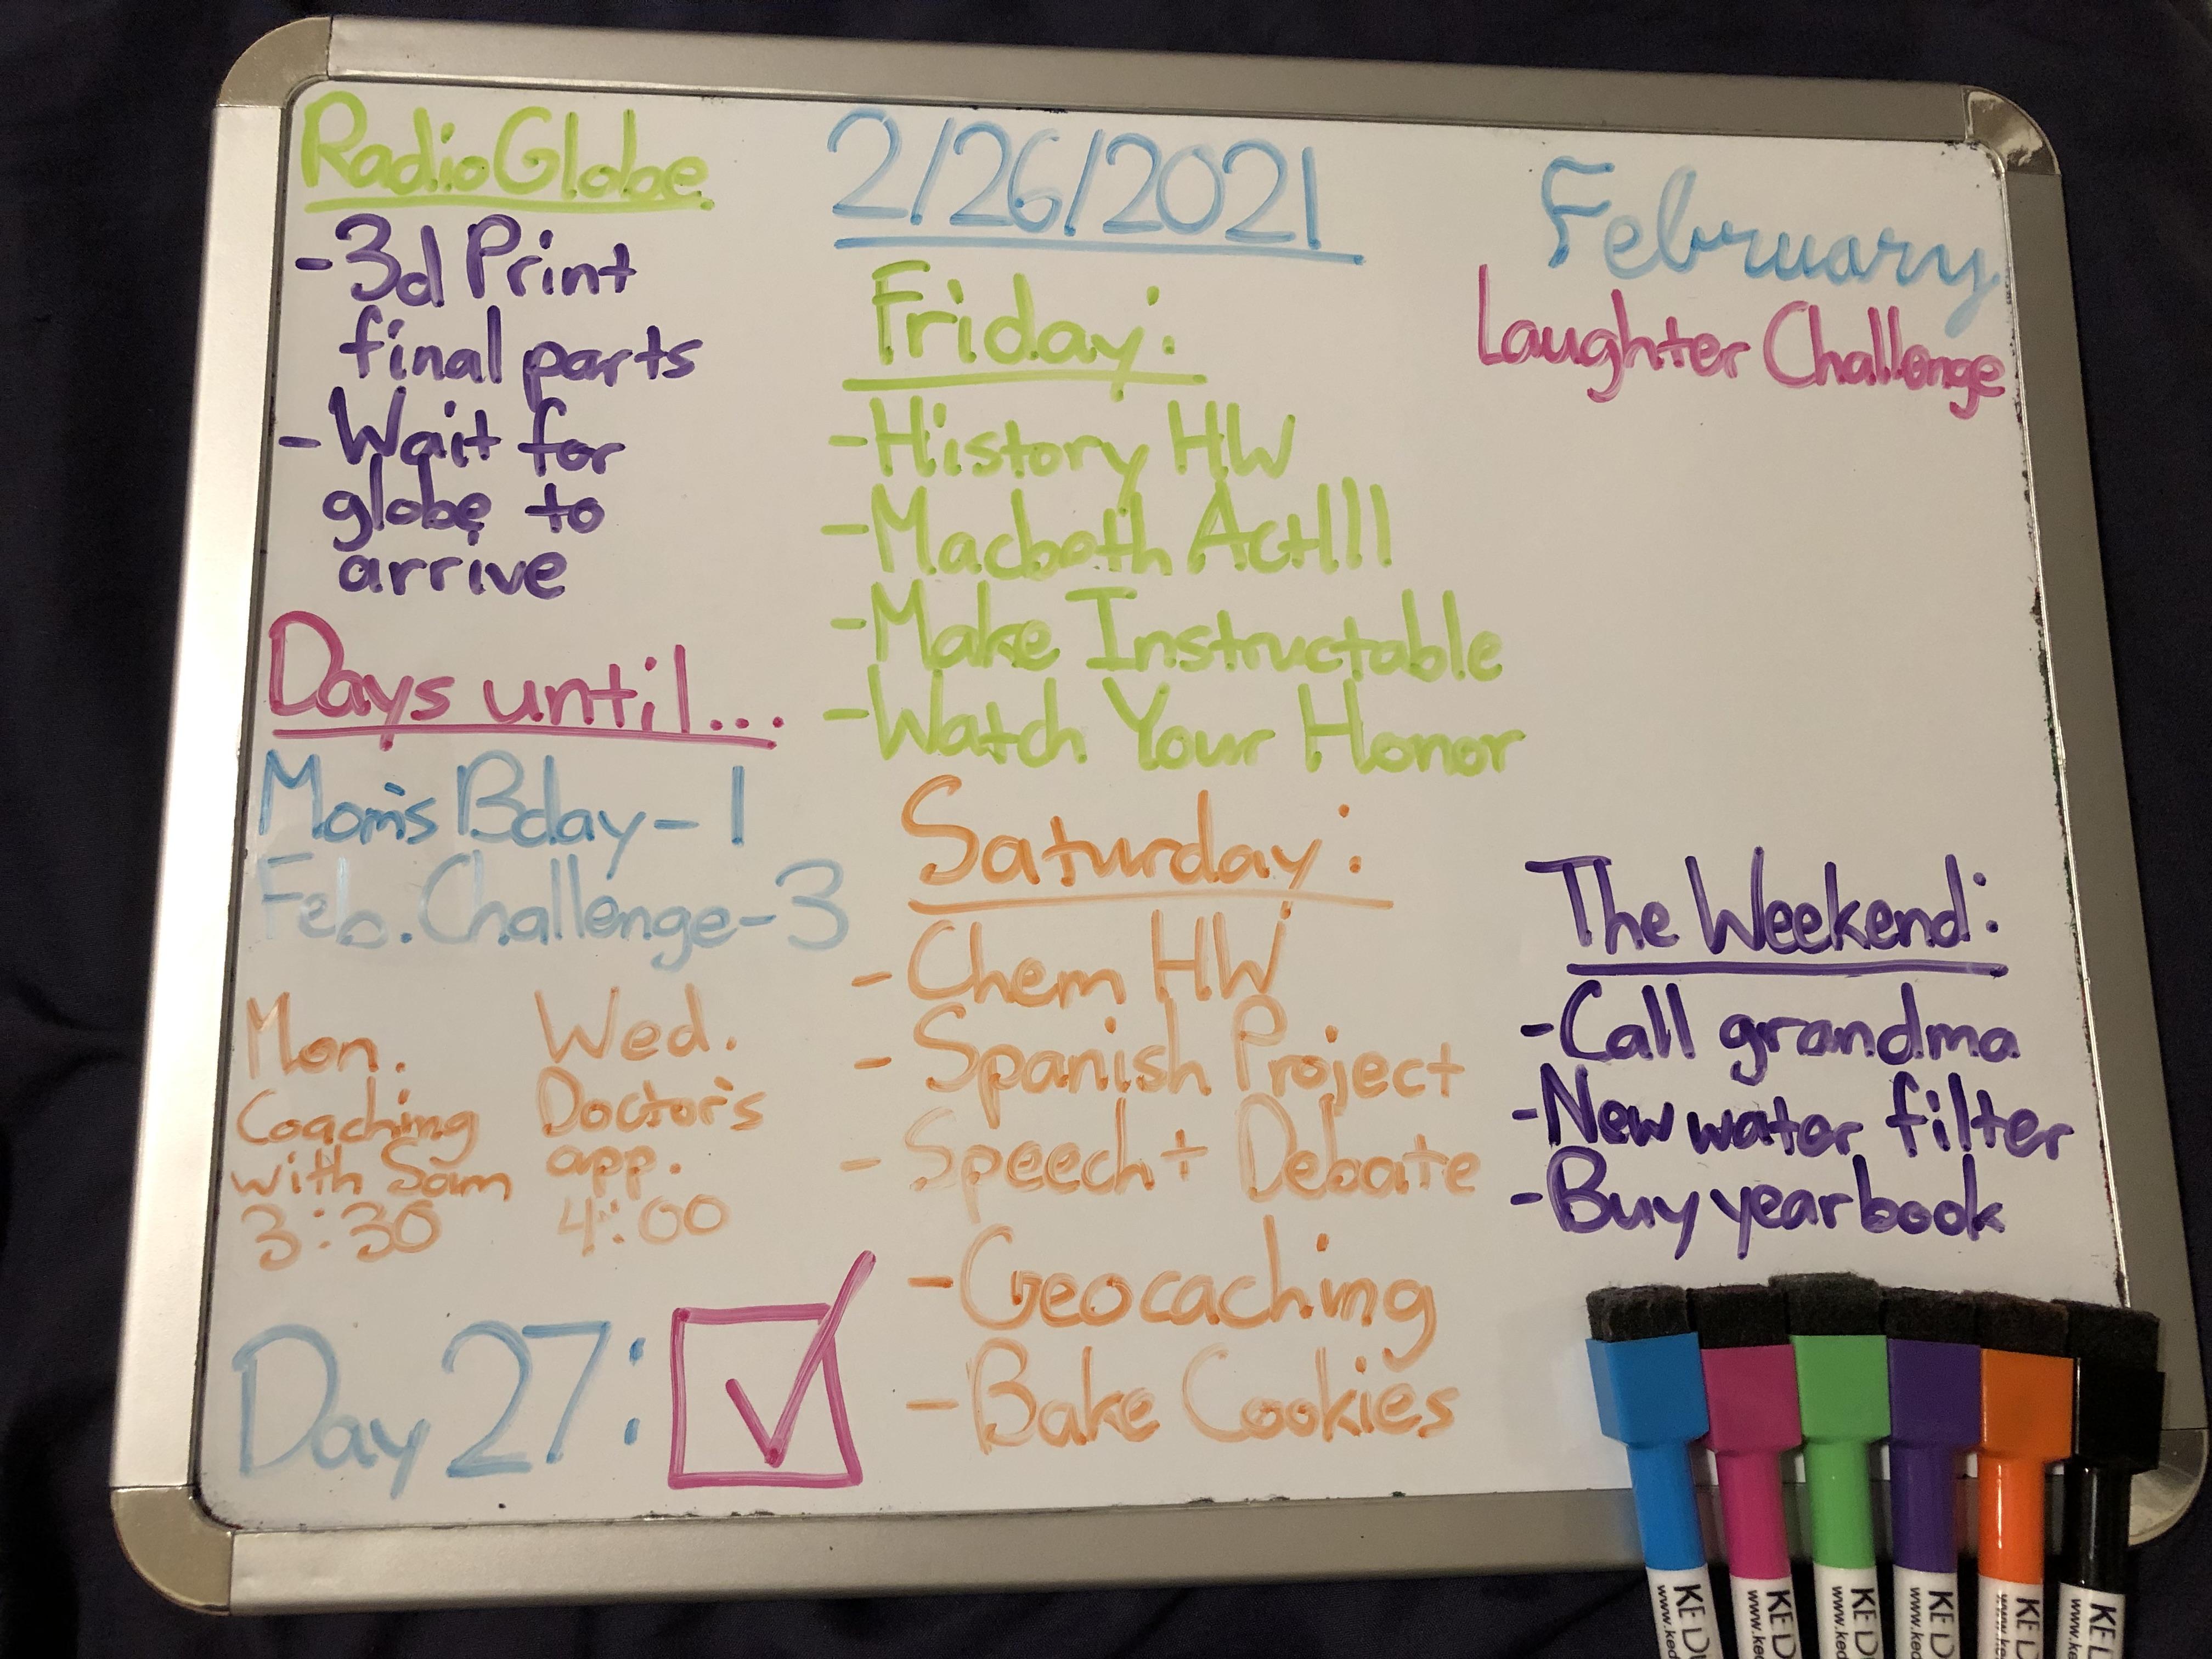 RadioGlobe
-3d Print
final parts
-Wait for
globe to
arrive
Days until...
Mom's Bday-1
Feb. Challenge-3
Mon.
Coaching
with Sam
3:30
Wed.
Doctor's
app.
4:00
Day 27:
2/26/2021
Friday:
-History HW
-Macbeth Act III
-Make Instructable
-Watch Your Honor
Saturday:
-Chem HW
-Spanish Project
-Speech + Debate
-Geocaching
-Bake Cookies
February
Laughter Challenge
The Weekend:
-Call grandma
-New water filter
-Buy yearbook